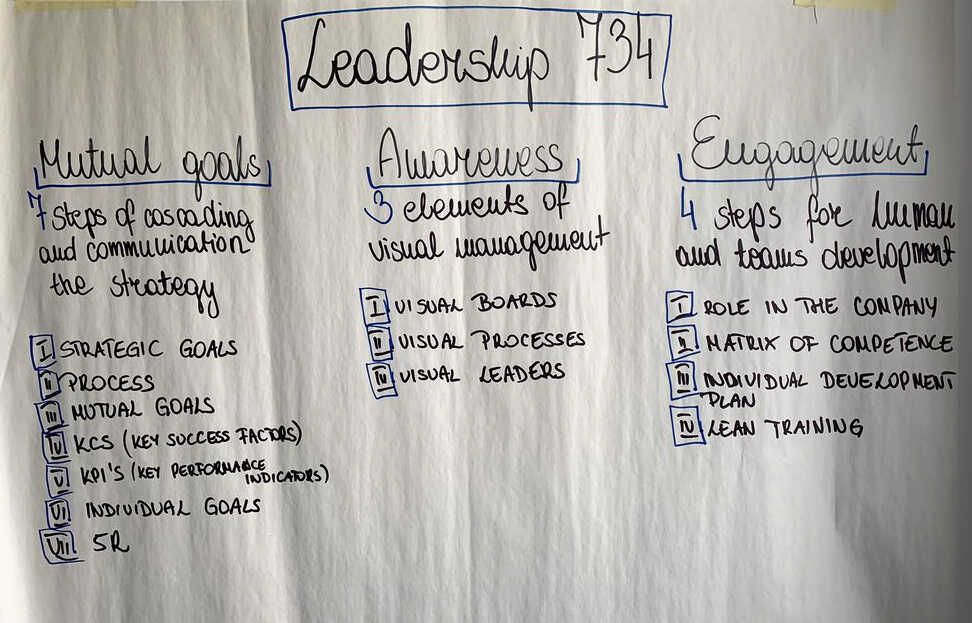 Leadership 734
Mutual goals
7 steps of cascading
and communication
the strategy
I STRATEGIC GOALS
II PROCESS
III MUTUAL GOALS
IV KCS (KEY SUCCESS FACTORS)
V KPI'S (KEY PERFORMANCE
INDICATORS)
VI INDIVIDUAL GOALS
VII 5R
Awareness
3 elements of
visual management
I VISUAL BOARDS
II VISUAL PROCESSES
IV VISUAL LEADERS
Engagement
4 steps for human
and teams development
I ROLE IN THE COMPANY
II MATRIX OF COMPETENCE
III INDIVIDUAL DEVELOPMENT
PLAN
IV LEAN TRAINING